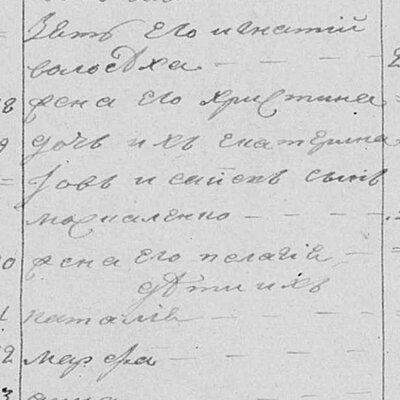 Зять его игнатій
волосѣха
18 жена его христина
9 дочъ ихъ екатерина
Іовъ исаіевъ сынъ
москаленко
0 жена его пелагія
дѣти ихъ
1 наталія
22 марфа
3 анна